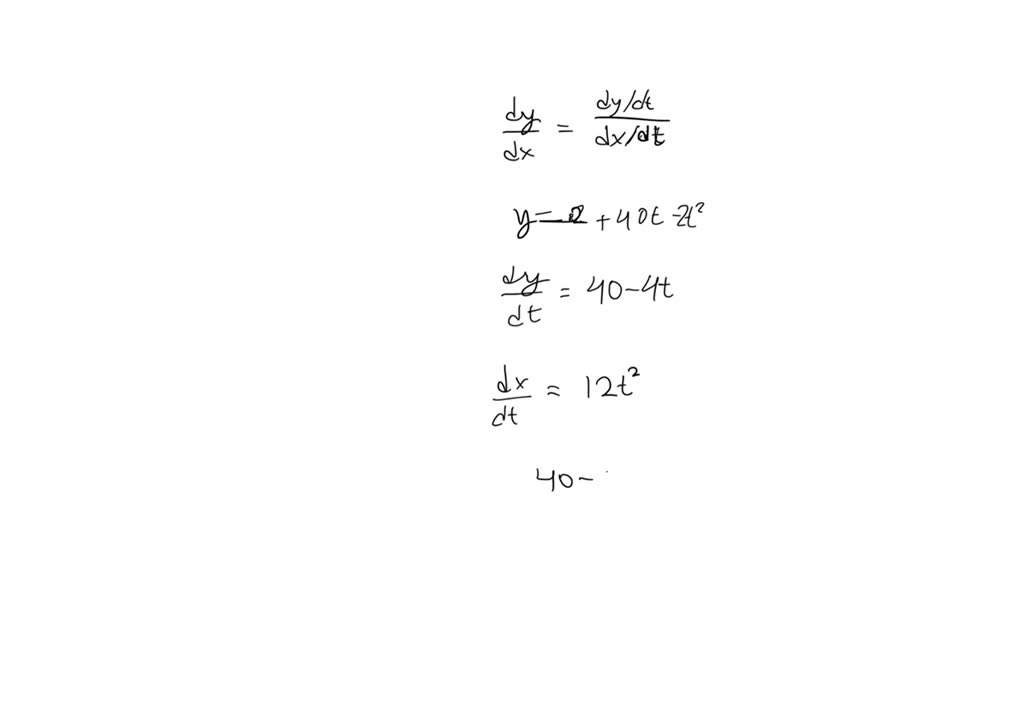 dy/dx = (dy/dt)/(dx/dt)
y= + 40t - 2t²
dy/dt = 40 - 4t
dx/dt = 12t²
40 -